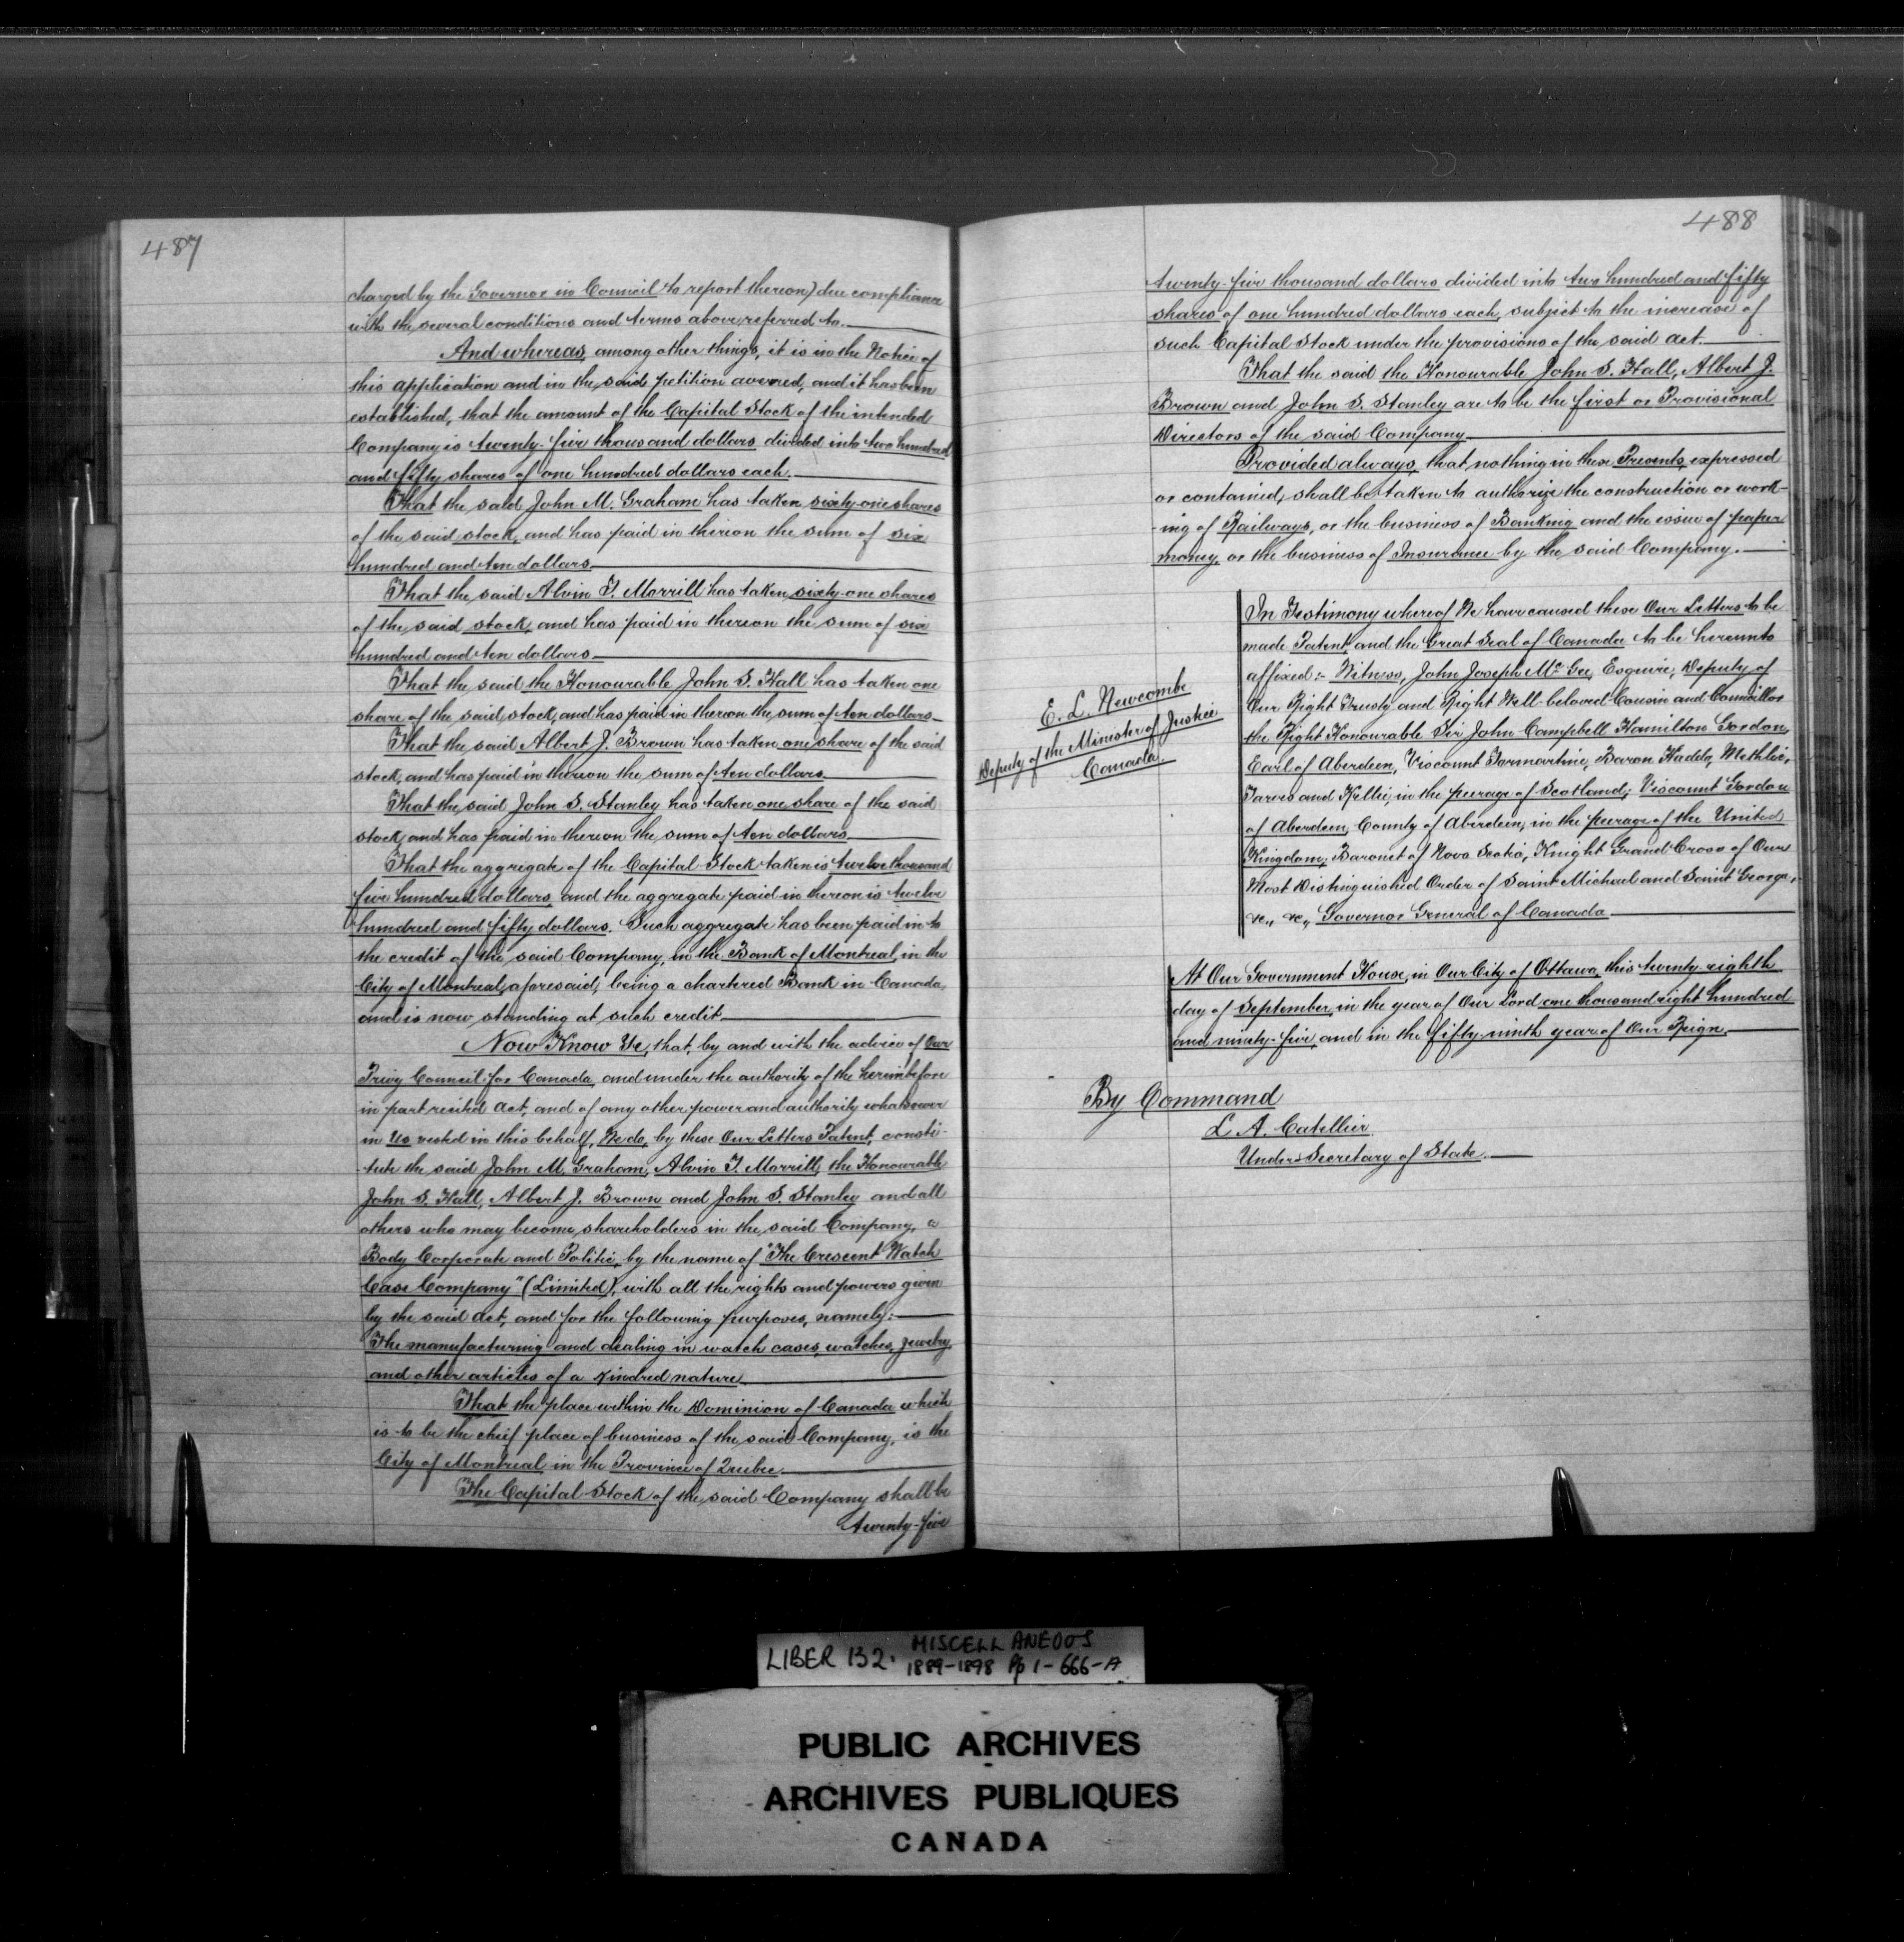 487
charged by the Governor in Council to report thereon) due compliance
with the several conditions and terms above referred to.
And whereas, among other things, it is in the Notice of
this application and in the said petition averred, and it has been
established, that the amount of the Capital Stock of the intended
Company is twenty-five thousand dollars divided into two hundred
and fifty shares of one hundred dollars each.
That the said John M. Graham has taken sixty-one shares
of the said stock, and has paid in thereon the sum of six
hundred and ten dollars.
That the said Alvin T. Morrill has taken sixty-one shares
of the said stock, and has paid in thereon the sum of six
hundred and ten dollars.
That the said the Honourable John S. Hall has taken one
share of the said stock, and has paid in thereon the sum of ten dollars.
That the said Albert J. Brown has taken one share of the said
stock, and has paid in thereon the sum of ten dollars.
That the said John S. Stanley has taken one share of the said
stock, and has paid in thereon the sum of ten dollars.
That the aggregate of the Capital Stock taken is twelve thousand
five hundred dollars, and the aggregate paid in thereon is twelve
hundred and fifty dollars. Such aggregate has been paid in to
the credit of the said Company, in the Bank of Montreal, in the
City of Montreal, aforesaid, being a chartered Bank in Canada,
and is now standing at such credit.
Now Know Ye, that, by and with the advice of Our
Privy Council for Canada, and under the authority of the hereinbefore
in part recited Act, and of any other power and authority whatsoever
in Us vested in this behalf, We do, by these Our Letters Patent, consti-
tute the said John M. Graham, Alvin T. Morrill, the Honourable
John S. Hall, Albert J. Brown and John S. Stanley and all
others who may become shareholders in the said Company, a
Body Corporate and Politic, by the name of "The Crescent Watch
Case Company" (Limited), with all the rights and powers given
by the said Act, and for the following purposes, namely:-
The manufacturing and dealing in watch cases, watches, jewelry,
and other articles of a kindred nature.
That the place within the Dominion of Canada which
is to be the chief place of business of the said Company, is the
City of Montreal in the Province of Quebec.
The Capital Stock of the said Company shall be
twenty-five
488
twenty-five thousand dollars divided into two hundred and fifty
shares of one hundred dollars each, subject to the increase of
such Capital Stock under the provisions of the said Act.
That the said the Honourable John S. Hall, Albert J.
Brown and John S. Stanley are to be the first or Provisional
Directors of the said Company.
Provided always, that nothing in these Presents expressed
or contained, shall be taken to authorize the construction or work-
-ing of Railways, or the business of Banking and the issue of paper
money, or the business of Insurance by the said Company.
E. L. Newcombe
Deputy of the Minister of Justice
Canada.
In Testimony whereof We have caused these Our Letters to be
made Patent, and the Great Seal of Canada to be hereunto
affixed:- Witness, John Joseph McGee, Esquire, Deputy of
Our Right Trusty and Right Well-beloved Cousin and Councillor
the Right Honourable Sir John Campbell Hamilton Gordon,
Earl of Aberdeen, Viscount Formartine, Baron Haddo, Methlic,
Tarves and Kellie, in the peerage of Scotland; Viscount Gordon
of Aberdeen, County of Aberdeen, in the peerage of the United
Kingdom; Baronet of Nova Scotia, Knight Grand Cross of Our
Most Distinguished Order of Saint Michael and Saint George,
&c., &c., Governor General of Canada.
At Our Government House, in Our City of Ottawa, this twenty-eighth
day of September, in the year of Our Lord one thousand eight hundred
and ninety-five, and in the fifty-ninth year of Our Reign.
By Command
L. A. Catellier.
Under-Secretary of State.
LIBER 132. MISCELLANEOUS
1889-1898 Pp 1-666-A
PUBLIC ARCHIVES
ARCHIVES PUBLIQUES
CANADA